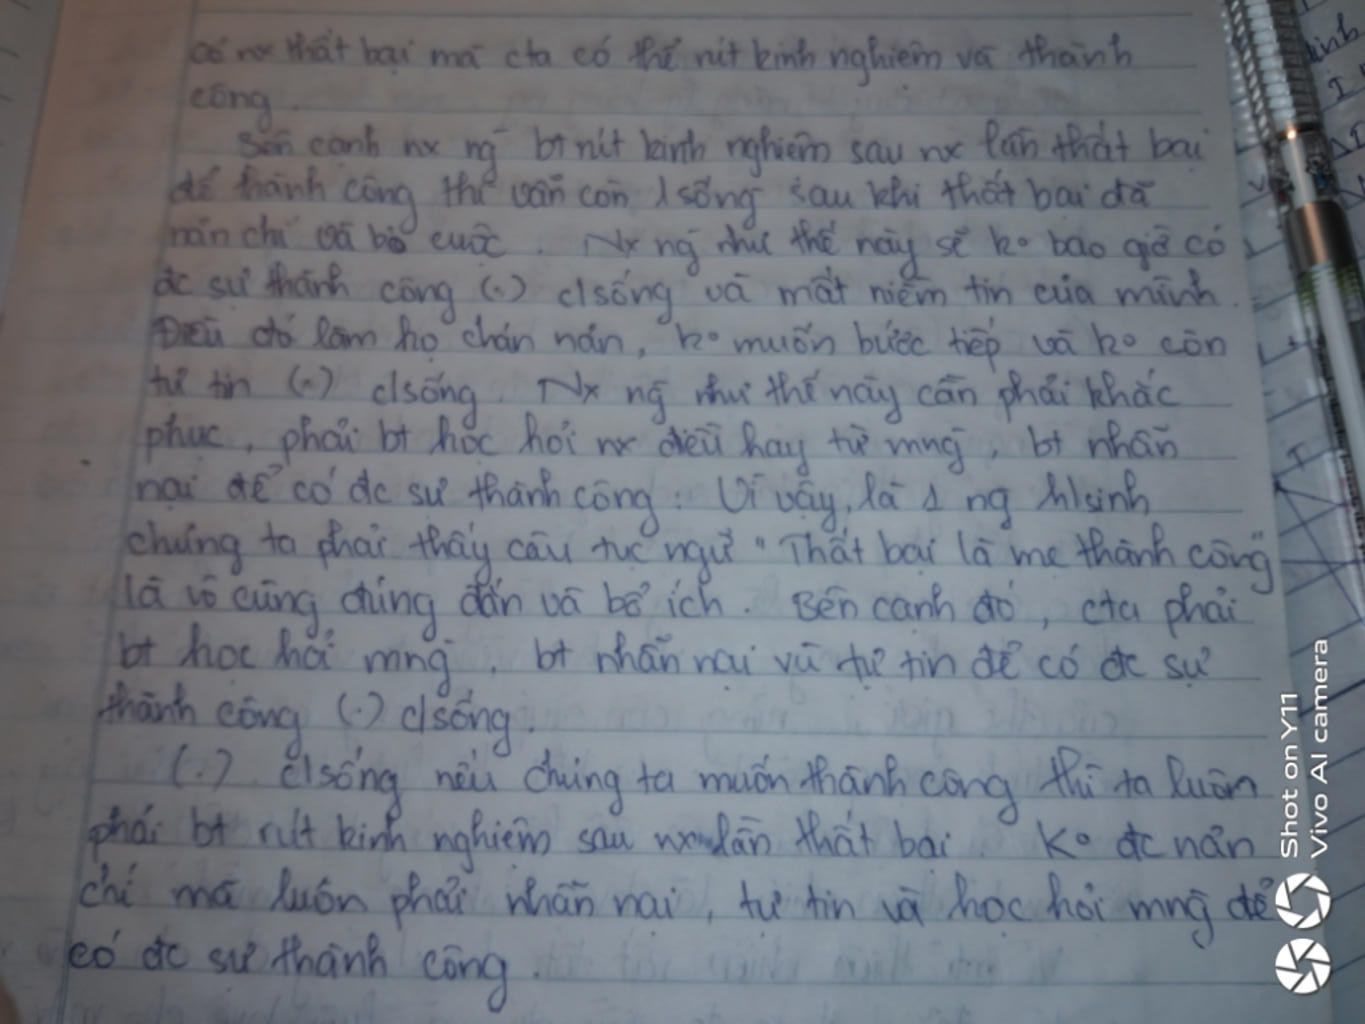 có nx thất bại mà cta có thể rút kinh nghiệm và thành
công.
Bên cạnh nx ng̃ bt rút kinh nghiệm sau nx lần thất bại
để thành công thì vẫn còn 1 sống sau khi thất bại đã
nản chí và bỏ cuộc. Nx ng̃ như thế này sẽ ko bao giờ có
đc sự thành công (.) c/sống và mất niềm tin của mình.
Điều đó làm họ chán nản, ko muốn bước tiếp và ko còn
tự tin (.) c/sống. Nx ng̃ như thế này cần phải khắc
phục, phải bt học hỏi nx điều hay từ mng̃, bt nhẫn
nại để có đc sự thành công. Vì vậy, là 1 ng h/sinh
chúng ta phải thấy câu tục ngữ "Thất bại là mẹ thành công"
là vô cùng đúng đắn và bổ ích. Bên cạnh đó, cta phải
bt học hỏi mng̃, bt nhẫn nại và tự tin để có đc sự
thành công (.) c/sống.
(.) c/sống nếu chúng ta muốn thành công thì ta luôn
phải bt rút kinh nghiệm sau nx lần thất bại. Ko đc nản
chí mà luôn phải nhẫn nại, tự tin và học hỏi mng̃ để
có đc sự thành công.
Shot on Y11
Vivo AI camera